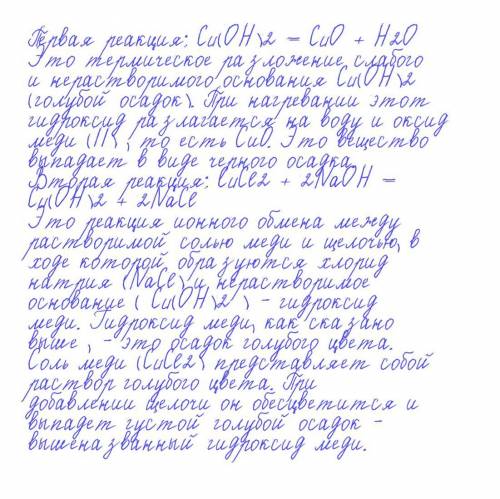 Первая реакция: Cu(OH)2 = CuO + H2O
Это термическое разложение слабого
и нерастворимого основания Cu(OH)2
(голубой осадок). При нагревании этот
гидроксид разлагается на воду и оксид
меди (II), то есть CuO. Это вещество
выпадает в виде черного осадка.
Вторая реакция: CuCl2 + 2NaOH =
Cu(OH)2 + 2NaCl
Это реакция ионного обмена между
растворимой солью меди и щелочью, в
ходе которой образуются хлорид
натрия (NaCl) и нерастворимое
основание ( Cu(OH)2 ) - гидроксид
меди. Гидроксид меди, как сказано
выше, - это осадок голубого цвета.
Соль меди (CuCl2) представляет собой
раствор голубого цвета. При
добавлении щелочи он обесцветится и
выпадет густой голубой осадок -
вышеназванный гидроксид меди.